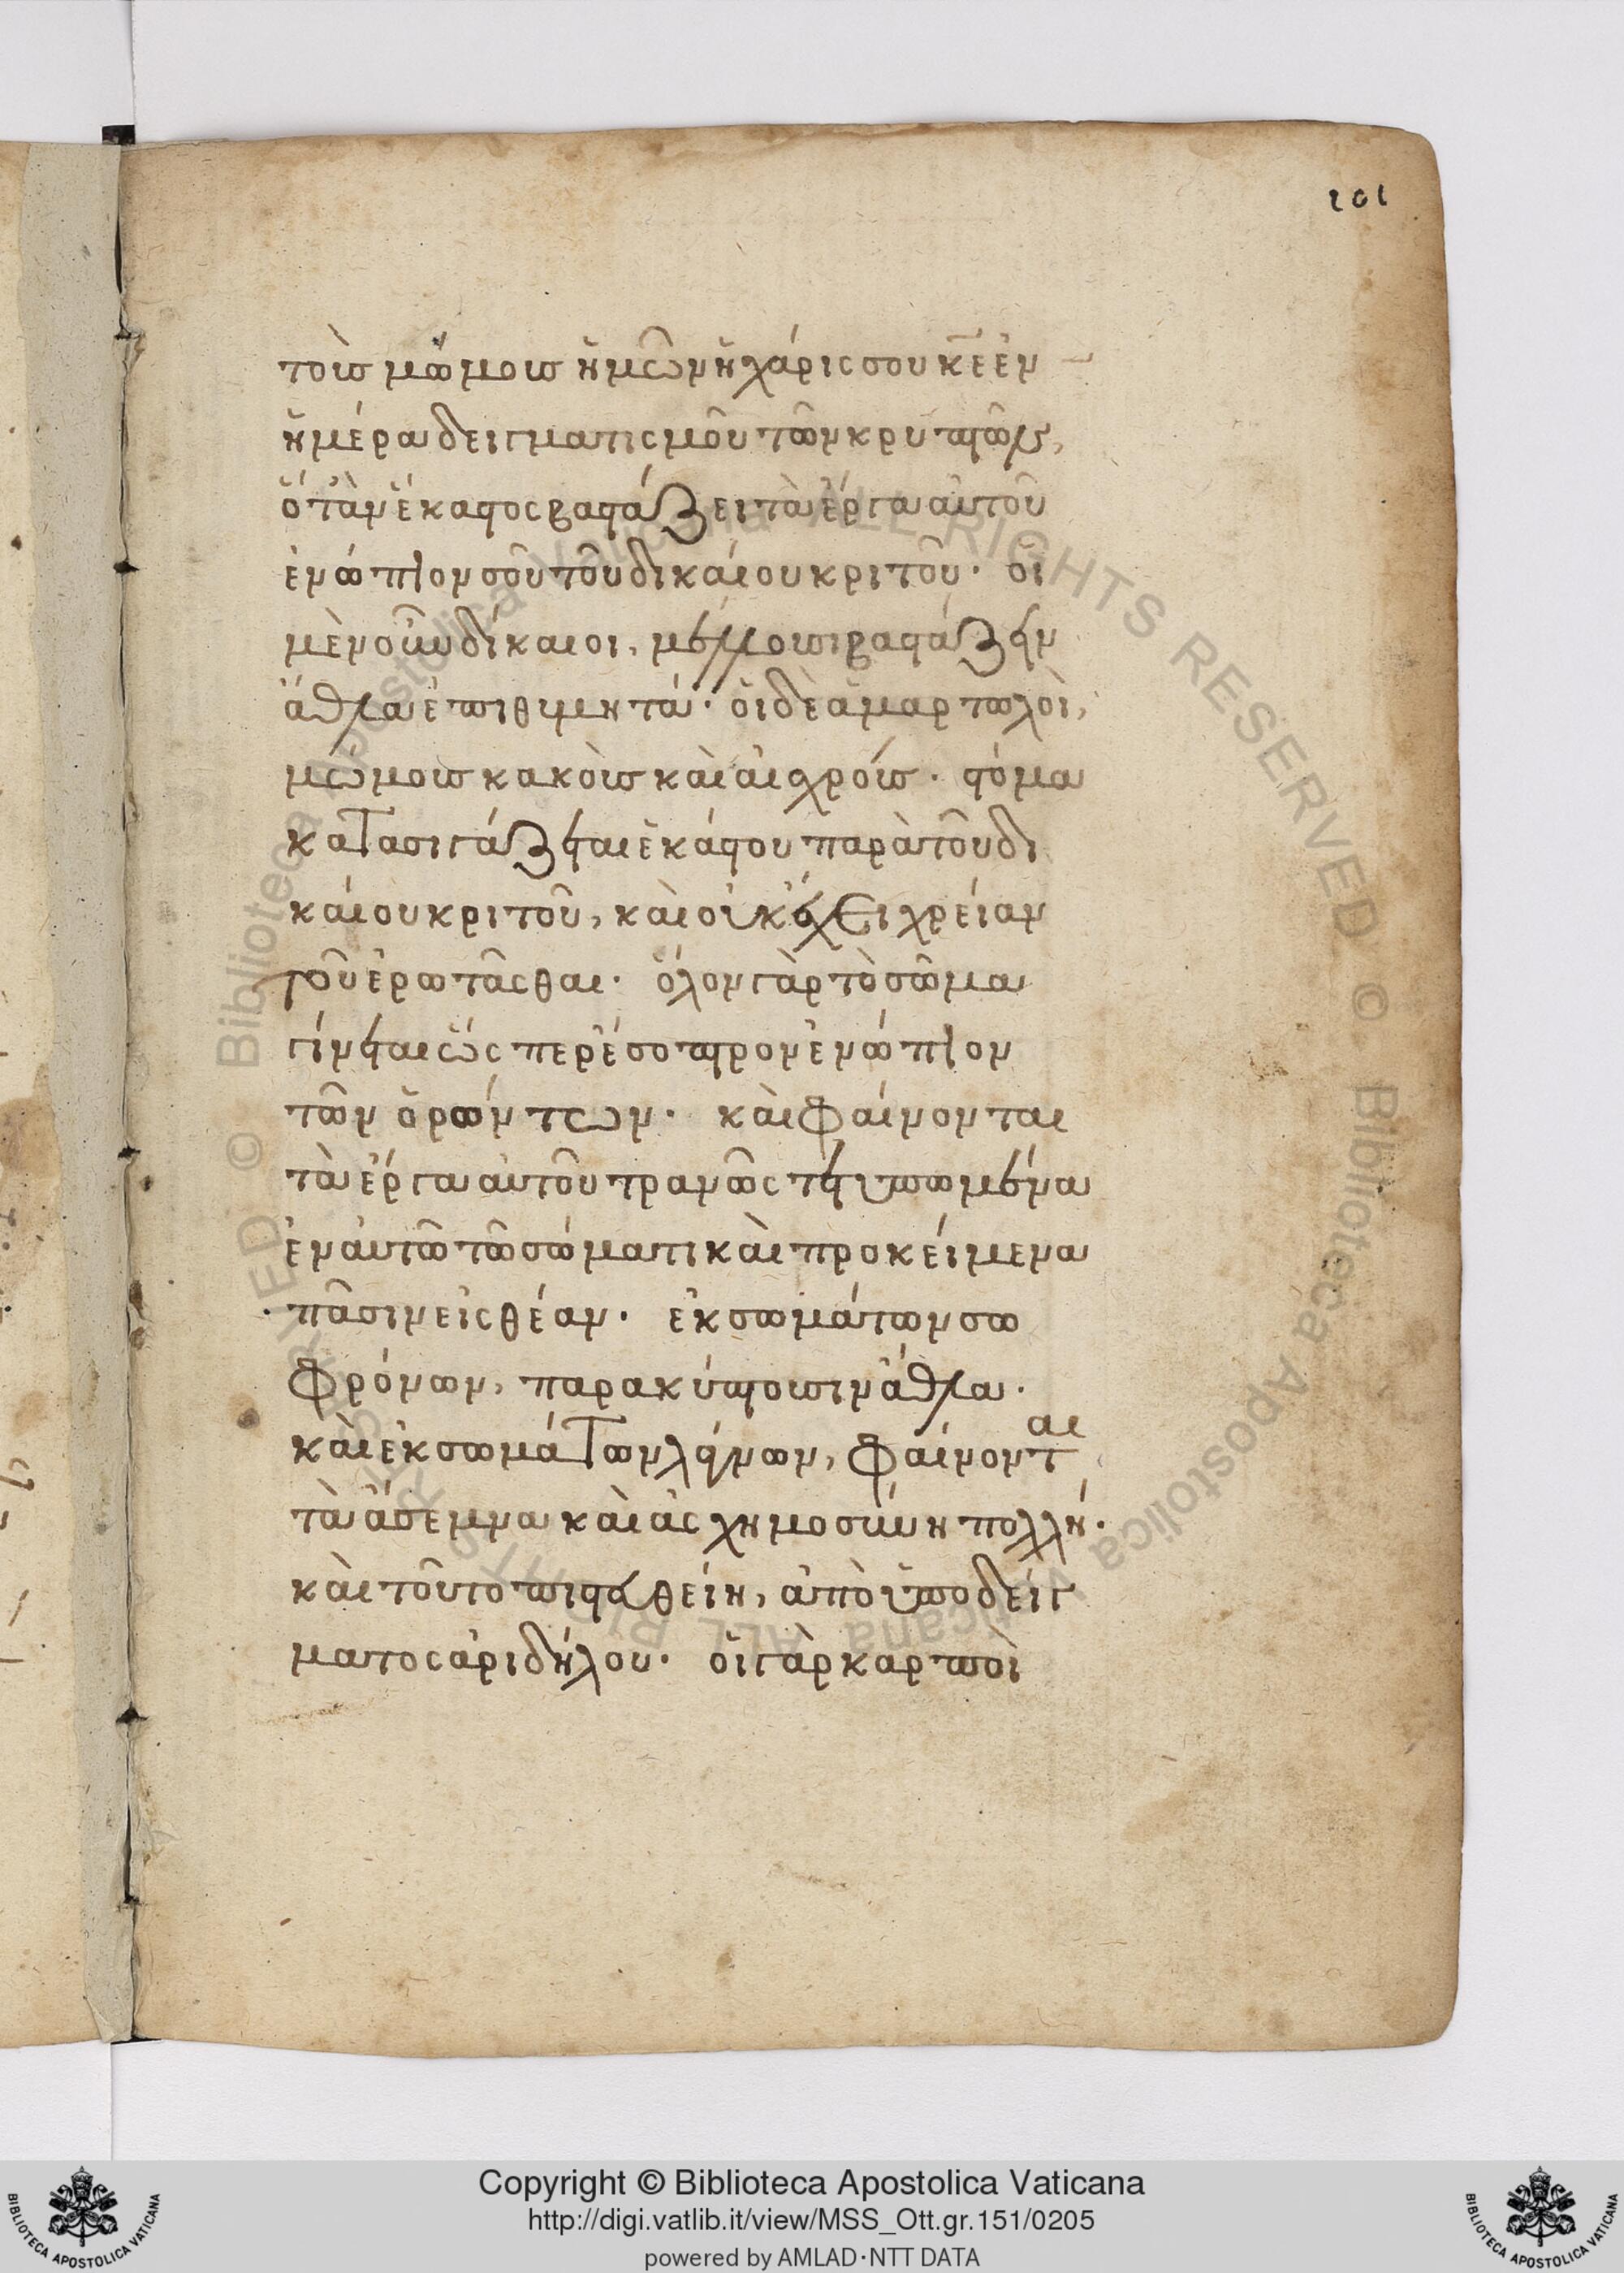 101
τοῖς μώμοις ἡμῶν ἡ χάρις σου κε ἐν
ἡμέρα δειγματισμοῦ τῶν κρυπτῶν,
ὅτὰν ἕκαστος βαστάζει τὰ ἔργα αὐτοῦ
ἐνώπιον σοῦ τοῦ δικαίου κριτοῦ· οἱ
μὲν οὖν δίκαιοι,
ἆθλα ἐπιθυμητά· οἱ δὲ ἁμαρτωλοὶ,
μώμοις κακοῖς καὶ αἰσχροῖς· στόμα
κατασιγάζεται ἑκάστου παρὰ τοῦ δι
καίου κριτοῦ, καὶ οὐκ ἔχει χρείαν
τοῦ ἐρωτᾶσθαι· ὅλον γὰρ τὸ σῶμα
γίνεται ὥσπερ ἔσοπτρον ἐνώπιον
τῶν ὁρώντων· καὶ φαίνονται
τὰ ἔργα αὐτοῦ τρανῶς τετυπωμένα
ἐν αὐτῶ τῶ σώματι καὶ προκείμενα
πᾶσιν εἰς θέαν· ἐκ σωμάτων σω
φρόνων, παρακύπτουσιν ἆθλα·
καὶ ἐκ σωμάτων λάγνων, φαίνονται
τὰ ἄσεμνα καὶ ἀσχημοσύνη πολλή·
καὶ τοῦτο πιστωθείη, ἀπὸ ὑποδείγ
ματος ἀριδήλου· οἱ γὰρ καρποὶ
© Biblioteca Apostolica Vaticana ALL RIGHTS RESERVED © Biblioteca Apostolica Vaticana ALL RIGHTS RESERVED
Copyright © Biblioteca Apostolica Vaticana
http://digi.vatlib.it/view/MSS_Ott.gr.151/0205
powered by AMLAD·NTT DATA
BIBLIOTECA APOSTOLICA VATICANA
BIBLIOTECA APOSTOLICA VATICANA